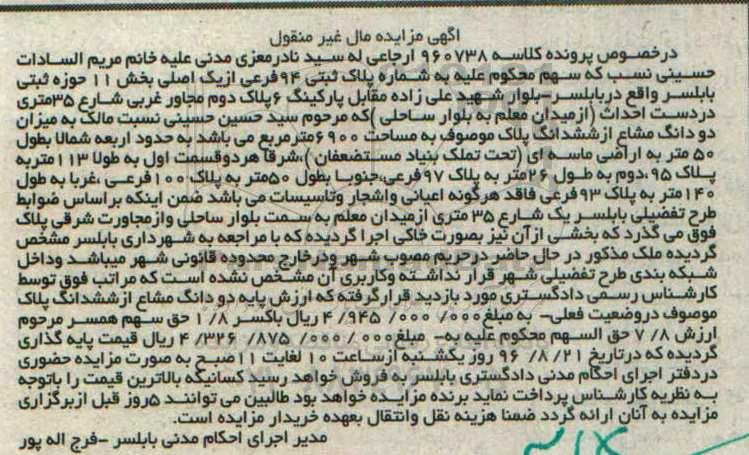 اگهی مزایده مال غیر منقول
درخصوص پرونده کلاسه ۹۶۰۷۳۸ ارجاعی له سید نادرمعزی مدنی علیه خانم مریم السادات
حسینی نسب که سهم محکوم علیه به شماره پلاک ثبتی ۹۴فرعی ازیک اصلی بخش ۱۱ حوزه ثبتی
بابلسر واقع دربابلسر-بلوار شهید علی زاده مقابل پارکینگ ۶پلاک دوم مجاور غربی شارع ۳۵متری
دردست احداث (ازمیدان معلم به بلوار ساحلی )که مرحوم سید حسین حسینی نسبت مالک به میزان
دو دانگ مشاع ازششدانگ پلاک موصوف به مساحت ۶۹۰۰مترمربع می باشد به حدود اربعه شمالا بطول
۵۰ متر به اراضی ماسه ای (تحت تملک بنیاد مستضعفان )،شرقا هردوقسمت اول به طولا ۱۱۳متربه
پلاک ۹۵،دوم به طول ۲۶متر به پلاک ۹۷فرعی،جنوبا بطول ۵۰متر به پلاک ۱۰۰فرعی ،غربا به طول
۱۴۰متر به پلاک ۹۳فرعی فاقد هرگونه اعیانی واشجار وتاسیسات می باشد ضمن اینکه براساس ضوابط
طرح تفضیلی بابلسر یک شارع ۳۵ متری ازمیدان معلم به سمت بلوار ساحلی وازمجاورت شرقی پلاک
فوق می گذرد که بخشی ازآن نیز بصورت خاکی اجرا گردیده که با مراجعه به شهرداری بابلسر مشخص
گردیده ملک مذکور در حال حاضر درحریم مصوب شهر ودرخارج محدوده قانونی شهر میباشد وداخل
شبکه بندی طرح تفضیلی شهر قرار نداشته وکاربری آن مشخص نشده است که مراتب فوق توسط
کارشناس رسمی دادگستری مورد بازدید قرارگرفته که ارزش پایه دو دانگ مشاع ازششدانگ پلاک
موصوف دروضعیت فعلی- به مبلغ۰۰۰/ ۰۰۰/ ۹۴۵/ ۴ ریال باکسر ۱/۸ حق سهم همسر مرحوم
ارزش ۷/۸ حق السهم محکوم علیه به- مبلغ۰۰۰/ ۸۷۵/ ۳۲۶/ ۴ ریال قیمت پایه گذاری
گردیده که درتاریخ ۲۱/ ۸/ ۹۶ روز یکشنبه ازساعت ۱۰ لغایت ۱۱صبح به صورت مزایده حضوری
دردفتر اجرای احکام مدنی دادگستری بابلسر به فروش خواهد رسید کسانیکه بالاترین قیمت را باتوجه
به نظریه کارشناس پرداخت نماید برنده مزایده خواهد بود طالبین می توانند ۵روز قبل ازبرگزاری
مزایده به آنان ارائه گردد ضمنا هزینه نقل وانتقال بعهده خریدار مزایده است.
مدیر اجرای احکام مدنی بابلسر -فرج اله پور